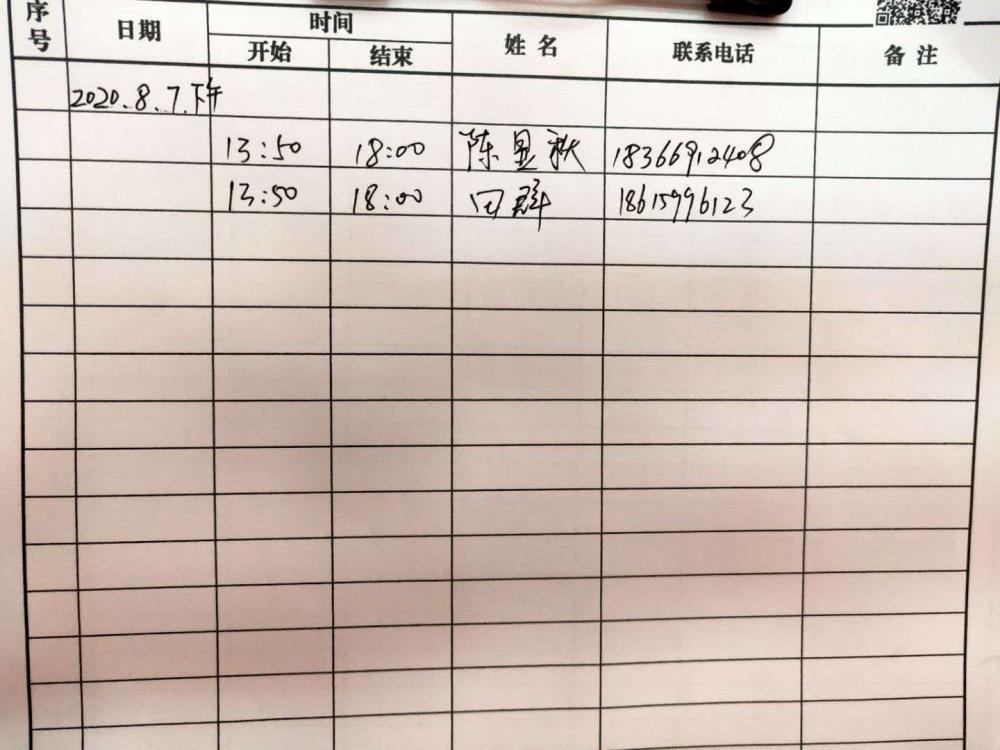 序号 日期 时间 姓名 联系电话 备注
开始 结束
2020.8.7.下午
13:50 18:00 陈显秋 18366912408
13:50 18:00 田群 18615996123